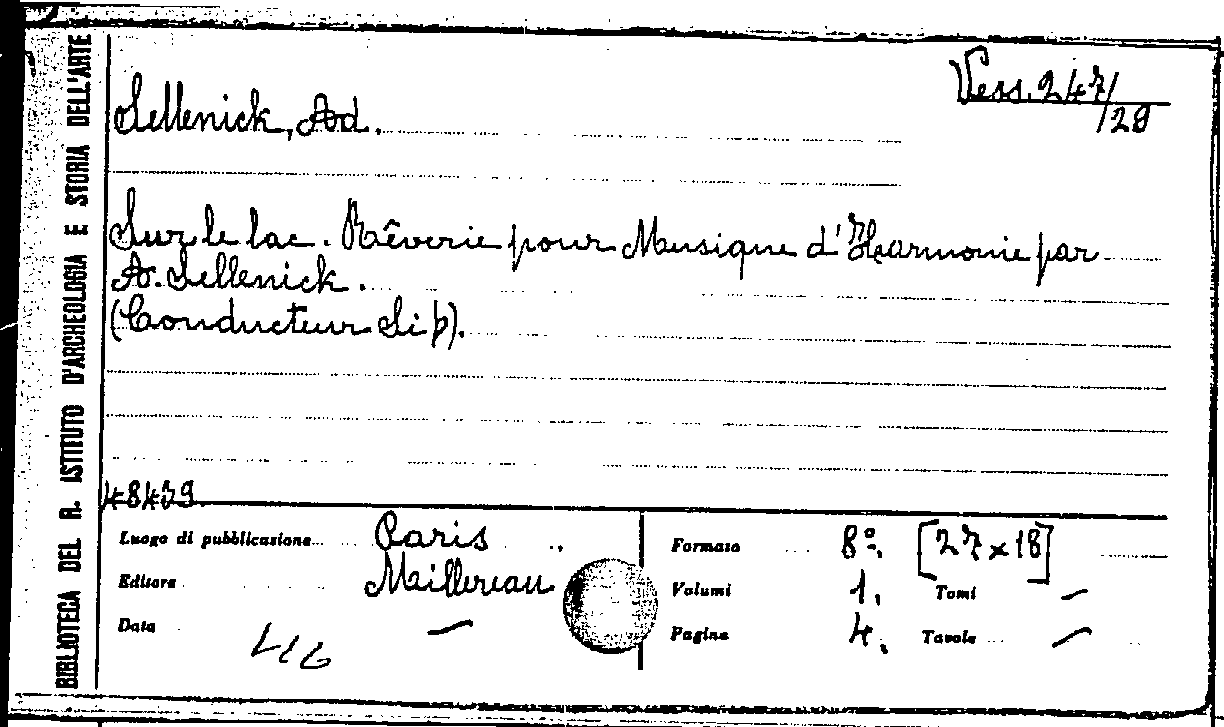 BIBLIOTECA DEL R. ISTITUTO D'ARCHEOLOGIA E STORIA DELL'ARTE
Vess. 247/
/29
Sellenick, Ad.
Sur le lac. Rêverie pour Musique d'Harmonie par
A. Sellenick.
(Conducteur Si b).
48439
Luogo di pubblicazione Paris
Editore Maillereau
Data —
Formato 8º. [27 x 18]
Volumi 1. Tomi —
Pagine 4. Tavole —